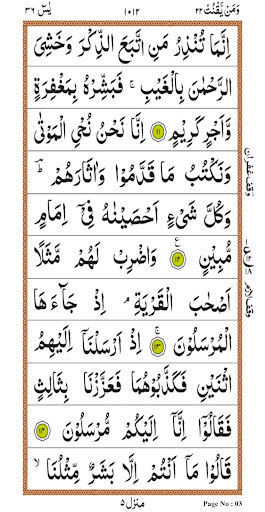 وَمَنْ يَّقْنُتْ ٢٢ ١٠١٢ يٰسٓ ٣٦
اِنَّمَا تُنْذِرُ مَنِ اتَّبَعَ الذِّكْرَ وَخَشِيَ
الرَّحْمٰنَ بِالْغَيْبِ ۚ فَبَشِّرْهُ بِمَغْفِرَةٍ
وَّاَجْرٍ كَرِيْمٍ ۝١١ اِنَّا نَحْنُ نُحْيِ الْمَوْتٰى
وَنَكْتُبُ مَا قَدَّمُوْا وَاٰثَارَهُمْ ؕ
وَكُلَّ شَيْءٍ اَحْصَيْنٰهُ فِيْۤ اِمَامٍ
مُّبِيْنٍ ۝١٢ وَاضْرِبْ لَهُمْ مَّثَلًا
اَصْحٰبَ الْقَرْيَةِ ۘ اِذْ جَآءَهَا
الْمُرْسَلُوْنَ ۝١٣ اِذْ اَرْسَلْنَاۤ اِلَيْهِمُ
اثْنَيْنِ فَكَذَّبُوْهُمَا فَعَزَّزْنَا بِثَالِثٍ
فَقَالُوْۤا اِنَّاۤ اِلَيْكُمْ مُّرْسَلُوْنَ ۝١٤
قَالُوْا مَاۤ اَنْتُمْ اِلَّا بَشَرٌ مِّثْلُنَا ۙ
وقف غفران
وقف لازم
منزل ٥
Page No : 03